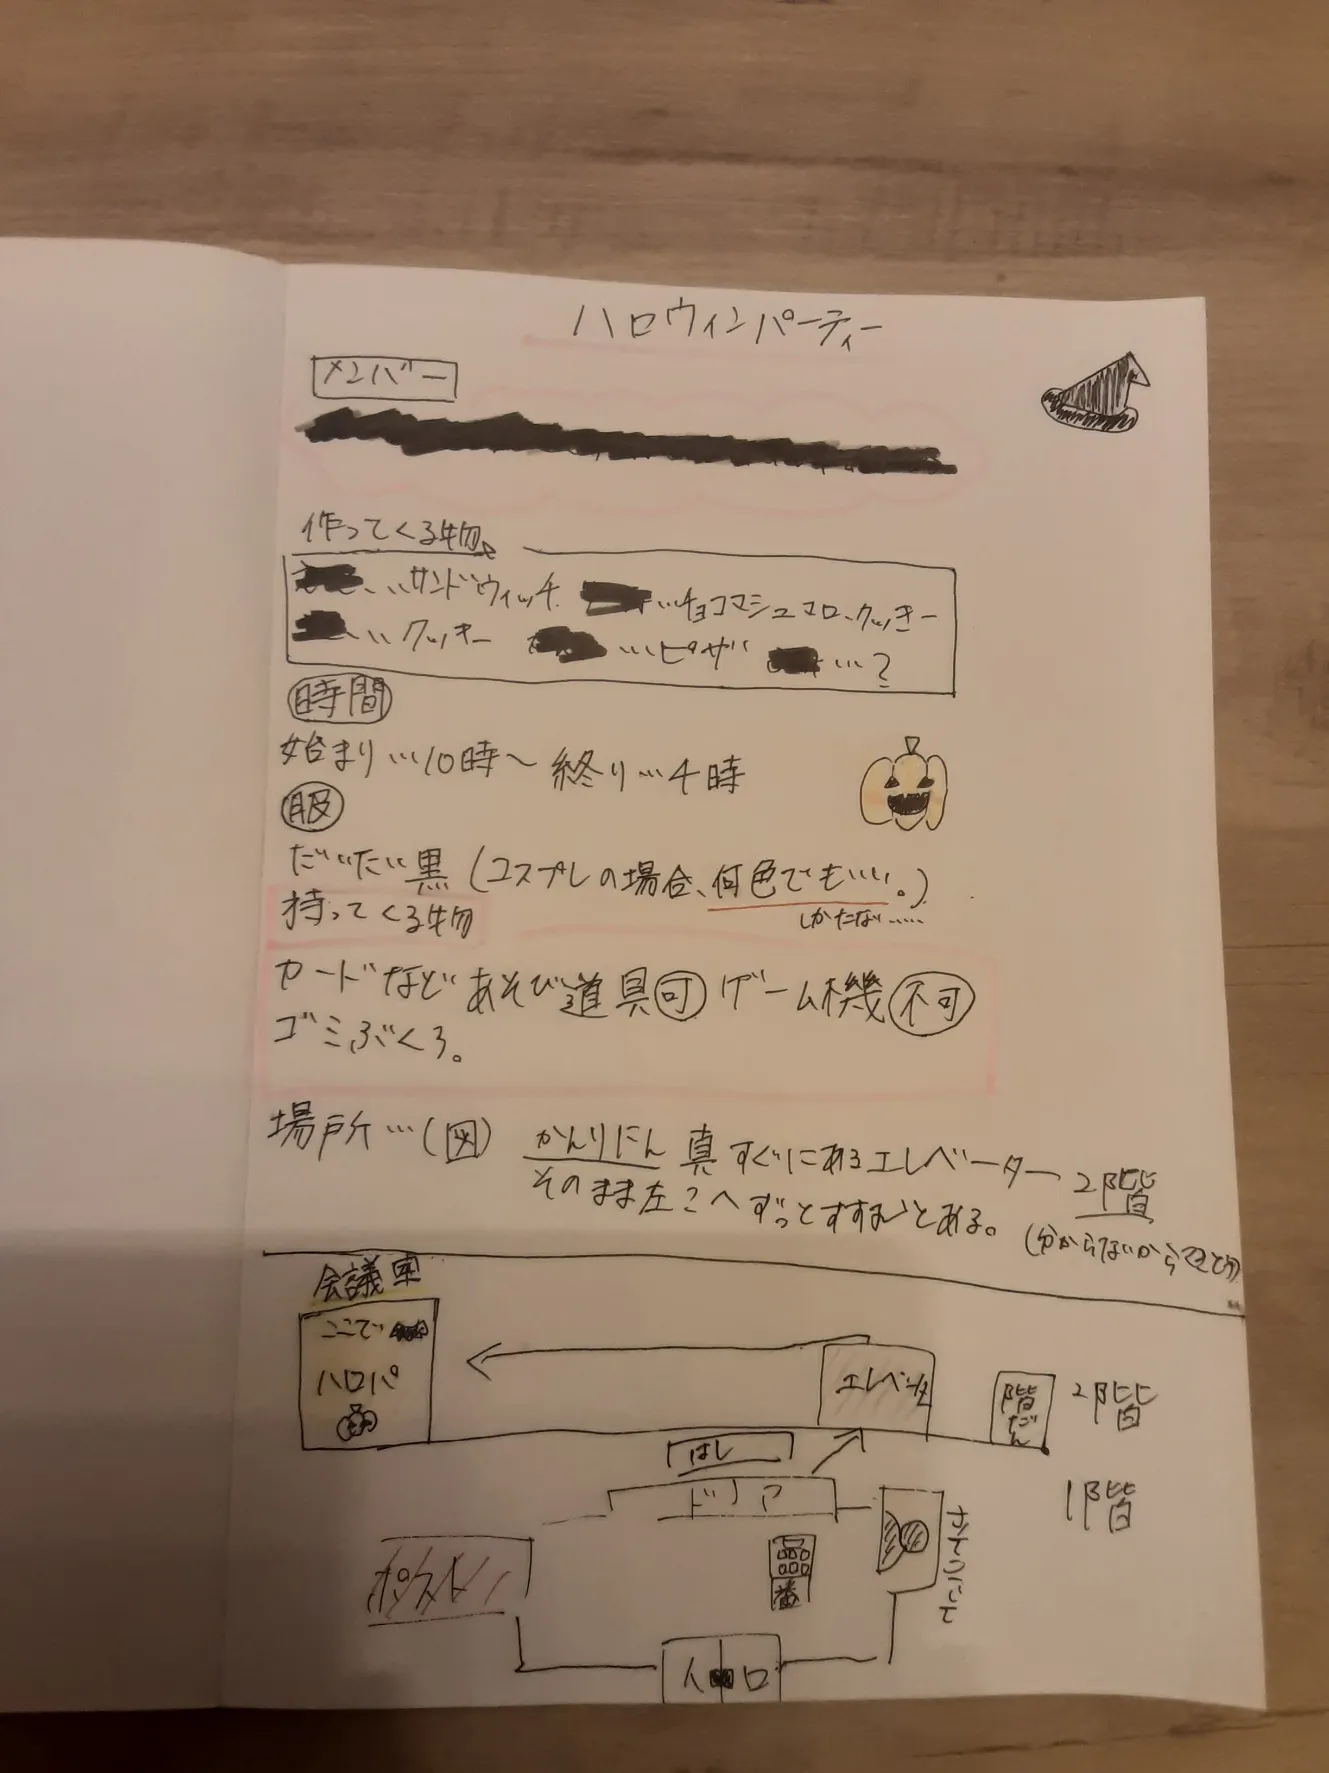 ハロウィンパーティー
メンバー
作ってくる物
…サンドウィッチ …チョコマシュマロ、クッきー
…クッキー …ピザ …?
時間
始まり…10時〜終り…4時
服
だいたい黒(コスプレの場合、何色でもいい。)
しかたない……
持ってくる物
カードなどあそび道具可 ゲーム機不可
ゴミぶくろ。
場所…(図) かんりにん 真すぐにあるエレベーター 2階
そのまま左こへずっとすすむとある。
(分からないから
会議室
ここで
ハロパ
エレベーター
階だん
2階
はし
ドア
1階
ポスト
入口